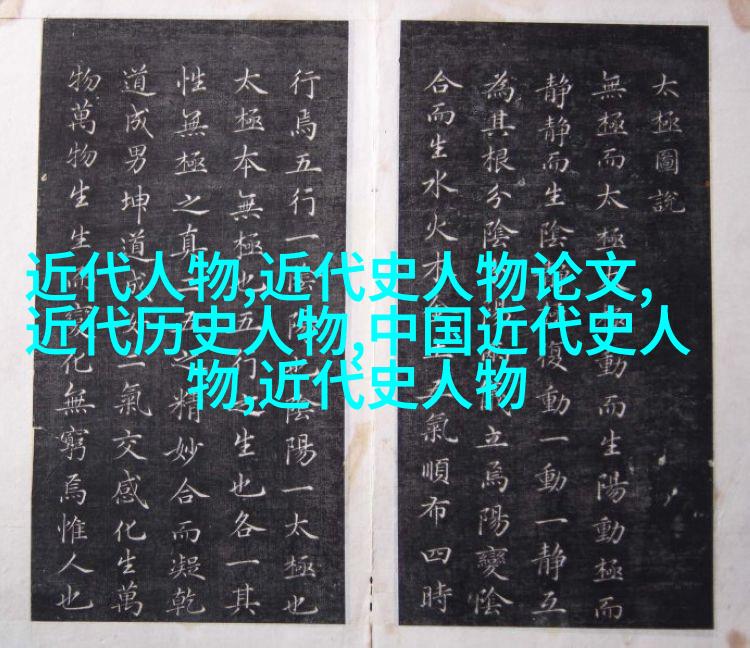 太極圖說
無極而太極動而生陽動極而
靜靜而生陰復動一動一靜互
為其根分陰陽立焉陽變陰
合而生水火木氣順布四時
行焉五行一陰陽也陰陽一太極也
太極本無極也五行生也各一其
性無極之真五之精妙合而凝乾
道成男坤道成二氣交感化生萬
物萬物生生而變化無窮焉惟人也
近代人物,近代史人物论文,
近代历史人物,中国近代史人
物,近代史人物